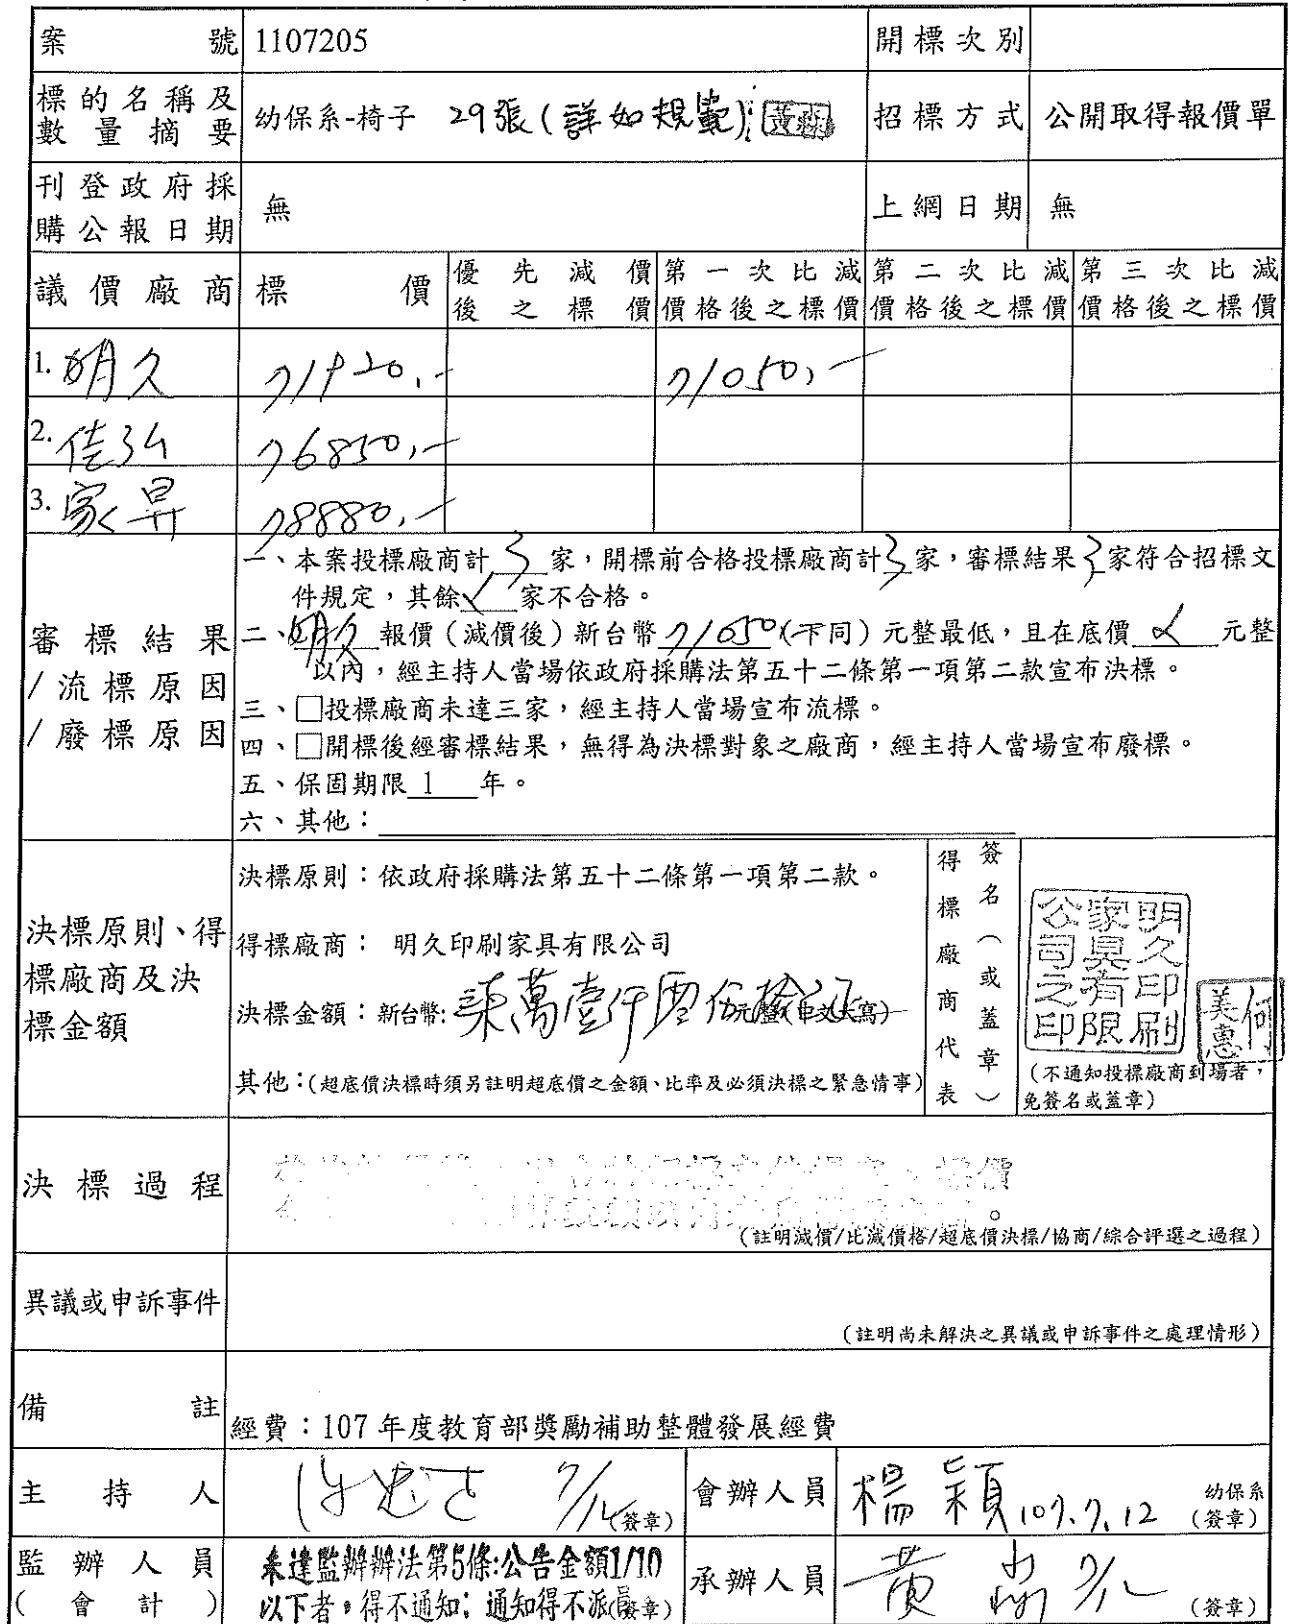 案號 1107205 開標次別
標的名稱及數量摘要 幼保系-椅子 29張(詳如規範) 招標方式 公開取得報價單
刊登政府採購公報日期 無 上網日期 無
議價廠商 標價 優先減價後之標價 第一次比減價格後之標價 第二次比減價格後之標價 第三次比減價格後之標價
1. 明久 71920,- 71050,-
2. 佳弘 76850,-
3. 家昇 78880,-
審標結果/流標原因/廢標原因
一、本案投標廠商計 3 家，開標前合格投標廠商計3家，審標結果3家符合招標文
件規定，其餘 家不合格。
二、明久 報價（減價後）新台幣 71050（下同）元整最低，且在底價 元整
以內，經主持人當場依政府採購法第五十二條第一項第二款宣布決標。
三、□投標廠商未達三家，經主持人當場宣布流標。
四、□開標後經審標結果，無得為決標對象之廠商，經主持人當場宣布廢標。
五、保固期限 1 年。
六、其他：
決標原則、得標廠商及決標金額
決標原則：依政府採購法第五十二條第一項第二款。
得標廠商： 明久印刷家具有限公司
決標金額：新台幣: 柒萬壹仟零伍拾元
其他：(超底價決標時須另註明超底價之金額、比率及必須決標之緊急情事)
得標廠商代表簽名（或蓋章）
明久印刷家具有限公司之印
何美惠
(不通知投標廠商到場者，
免簽名或蓋章)
決標過程
(註明減價/比減價格/超底價決標/協商/綜合評選之過程)
異議或申訴事件
(註明尚未解決之異議或申訴事件之處理情形)
備註 經費：107 年度教育部獎勵補助整體發展經費
主持人 7/12 (簽章) 會辦人員 楊穎 107.7.12 幼保系(簽章)
監辦人員(會計) 未達監辦辦法第5條:公告金額1/10
以下者，得不通知；通知得不派員(簽章) 承辦人員 黃 7/12 (簽章)